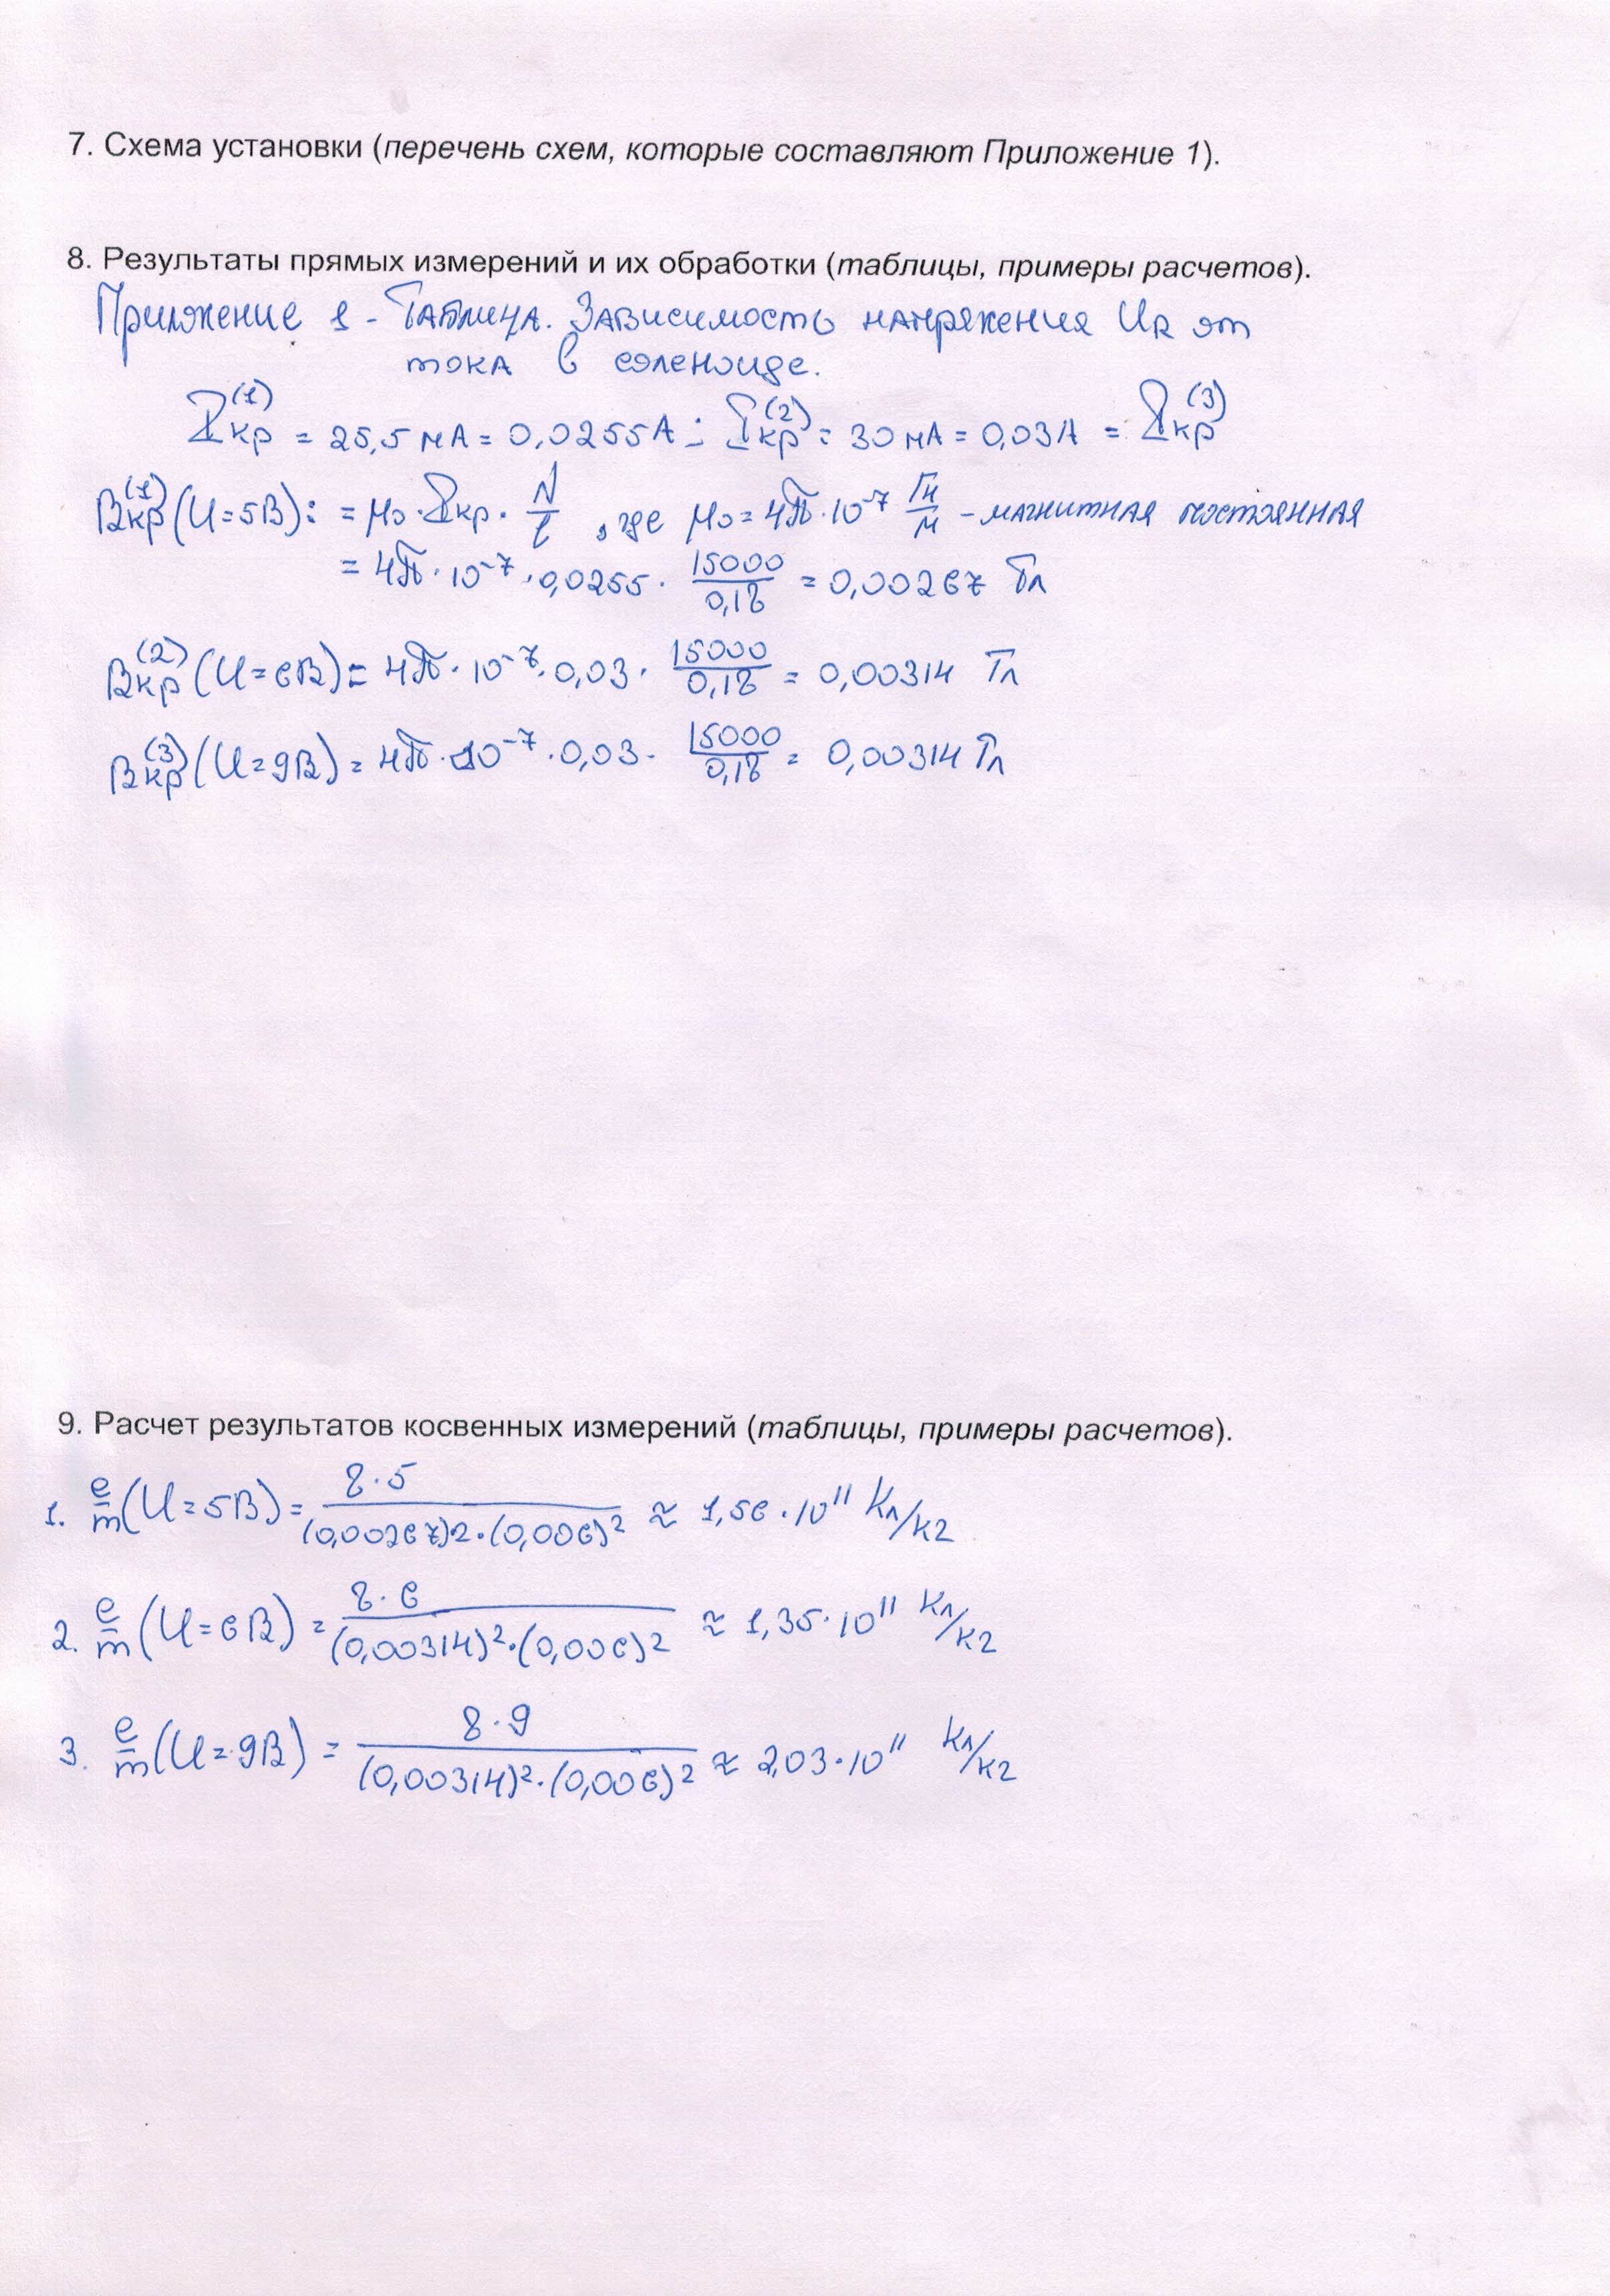 7. Схема установки (перечень схем, которые составляют Приложение 1).
8. Результаты прямых измерений и их обработки (таблицы, примеры расчетов).
Приложение 1 - Таблица. Зависимость напряжения U_R от
тока в соленоиде.
I_кр^(1) = 25,5 мА = 0,0255 А ; I_кр^(2) = 30 мА = 0,03 А = I_кр^(3)
B_кр^(1) (U=5В): = μ₀ · I_кр · N/l , где μ₀ = 4π · 10⁻⁷ Гн/м - магнитная постоянная
= 4π · 10⁻⁷ · 0,0255 · 15000/0,18 = 0,00267 Тл
B_кр^(2) (U=6В) = 4π · 10⁻⁷ · 0,03 · 15000/0,18 = 0,00314 Тл
B_кр^(3) (U=9В) = 4π · 10⁻⁷ · 0,03 · 15000/0,18 = 0,00314 Тл
9. Расчет результатов косвенных измерений (таблицы, примеры расчетов).
1. e/m (U=5В) = 8·5/((0,00267)2·(0,006)²) ≈ 1,56 · 10¹¹ Кл/кг
2. e/m (U=6В) = 8·6/((0,00314)²·(0,006)²) ≈ 1,35 · 10¹¹ Кл/кг
3. e/m (U=9В) = 8·9/((0,00314)²·(0,006)²) ≈ 2,03 · 10¹¹ Кл/кг